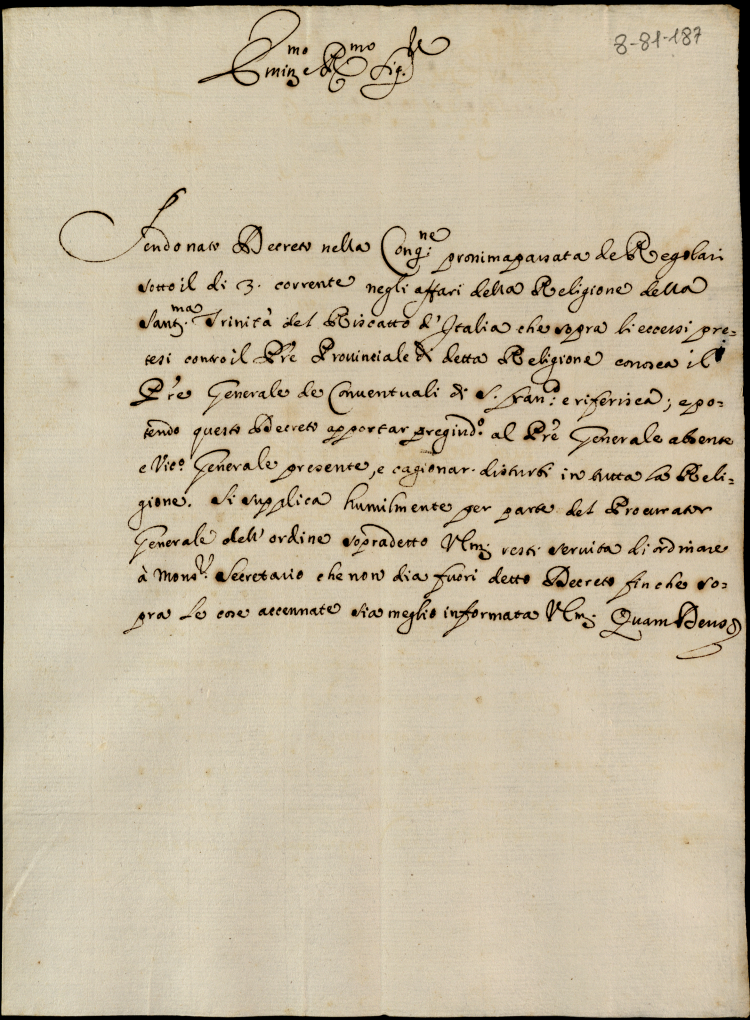 8-81-187
Emin.mo e R.mo Sig.re
Sendo nato Decreto nella Cong.ne pronima passata de Regolari
sotto il di 3. corrente negli affari della Religione della
Sant.ma Trinità del Riscatto d'Italia che sopra li eccessi pre=
tesi contro il Pre Provinciale di detta Religione conosca il
Pre Generale de Conventuali di S. Fran.o e riferisca; e po=
tendo questo Decreto apportar pregiud.o al Pre Generale absente
e Vic.o Generale presente, e cagionar disturbi in tutta la Reli=
gione. Si supplica humilmente per parte del Procurator
Generale dell'ordine sopradetto V Em. resti servita di ordinare
à Mons.r Secretario che non dia fuori detto Decreto finche so=
pra le cose accennate sia meglio informata V Em. Quam Deus